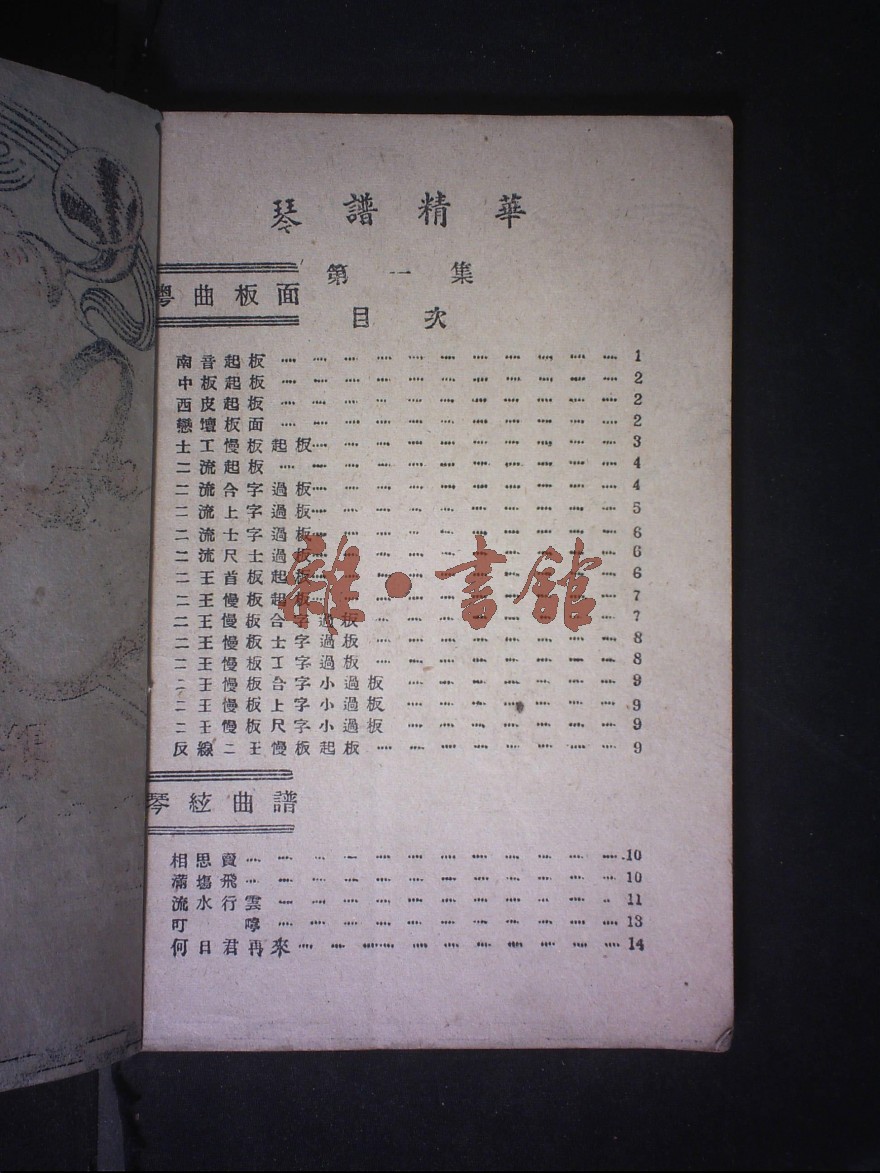 琴譜精華
第一集
目次
粵曲板面
南音起板 1
中板起板 2
西皮起板 2
戀壇板面 2
士工慢板起板 3
二流起板 4
二流合字過板 4
二流上字過板 5
二流士字過板 6
二流尺士過板 6
二王首板起板 6
二王慢板起板 7
二王慢板合字過板 7
二王慢板士字過板 8
二王慢板工字過板 8
二王慢板合字小過板 9
二王慢板上字小過板 9
二王慢板尺字小過板 9
反線二王慢板起板 9
琴絃曲譜
相思賣 10
滿塲飛 10
流水行雲 11
叮嚀 13
何日君再來 14
雜·書舘